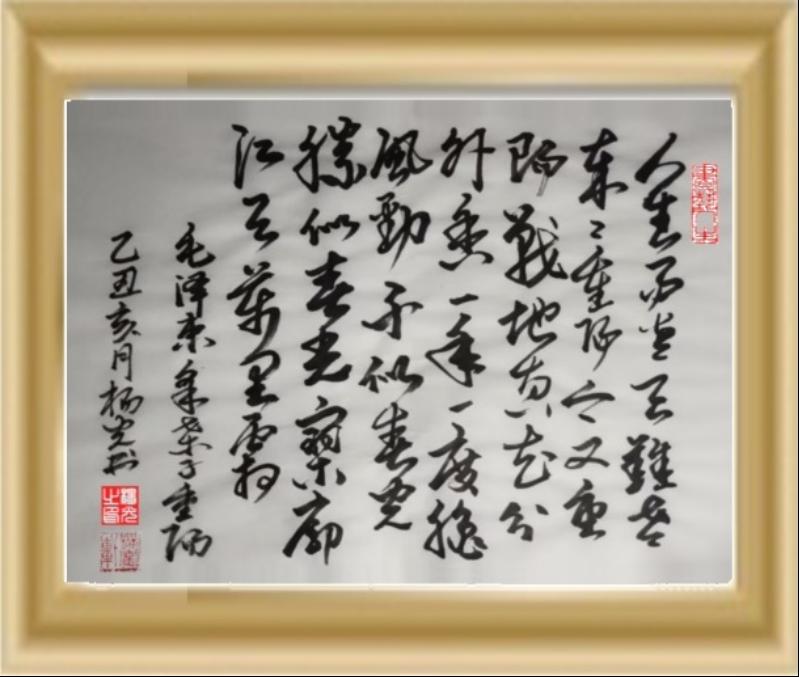 人生易老天難老
歲々重陽今又重
陽戰地黄花分
外香一年一度秋
風勁不似春光
勝似春光寥廓
江天萬里霜
毛泽东采桑子重陽
乙丑亥月杨光书
楊光之印